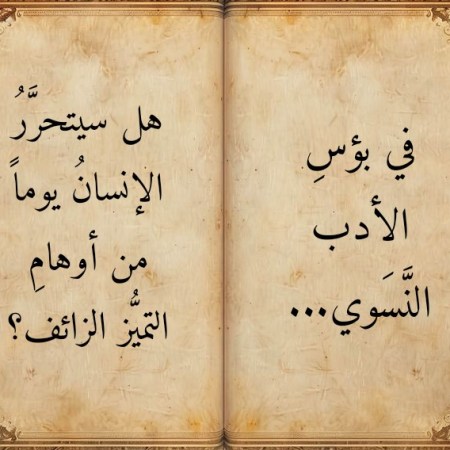 في بؤسِ
الأدب
النَّسَوي...
هل سيتحرَّرُ
الإنسانُ يوماً
من أوهامِ
التميُّز الزائف؟